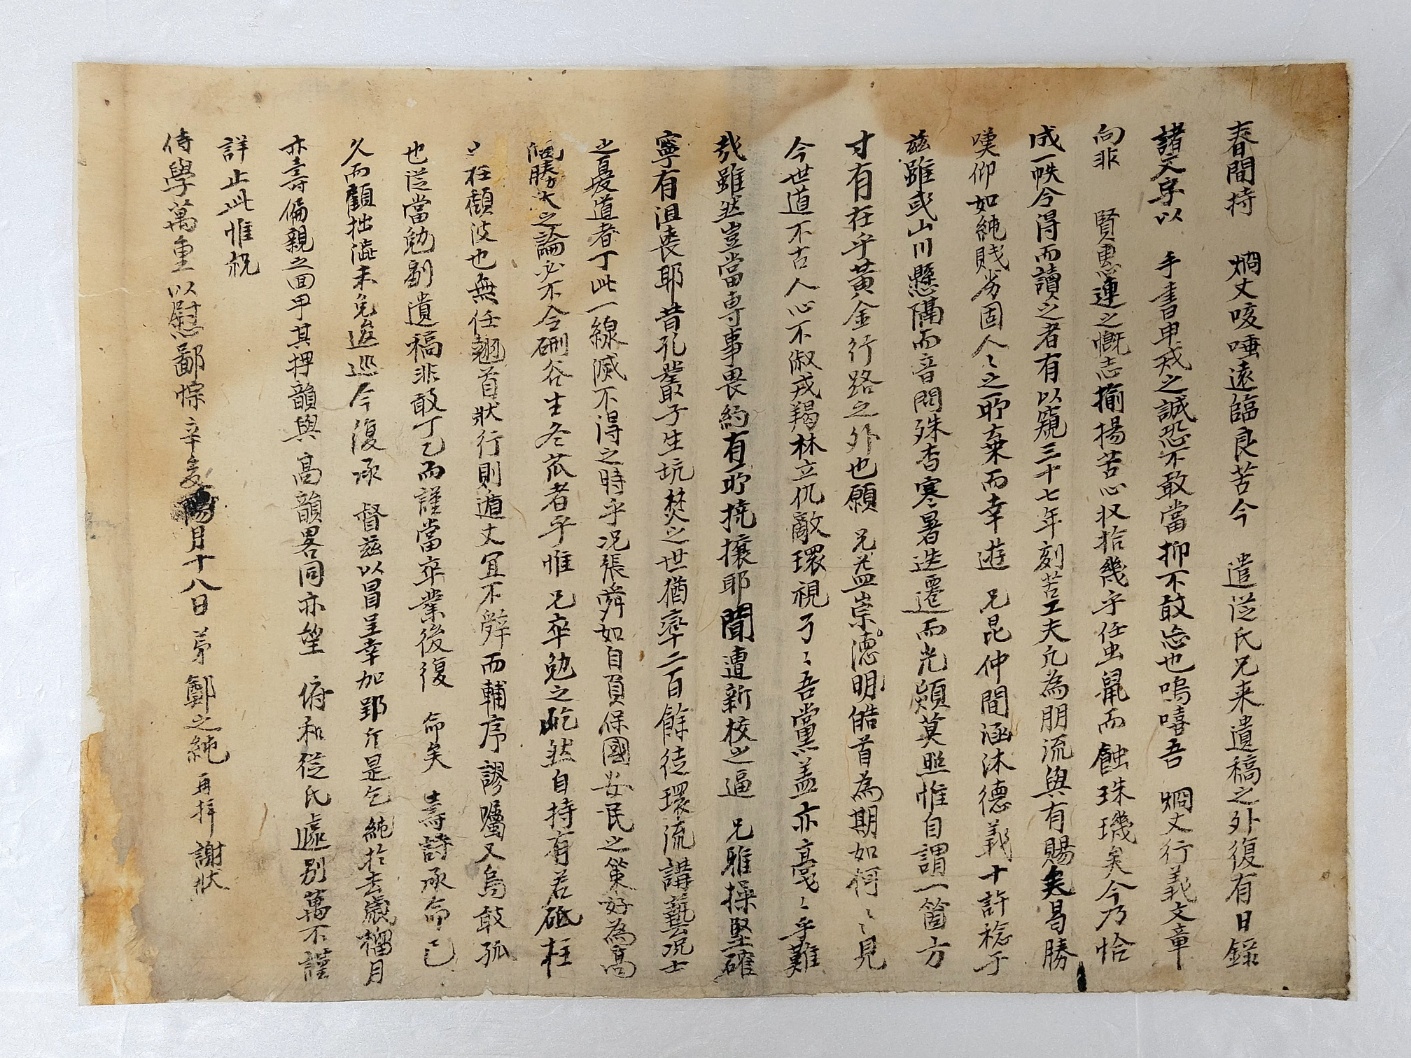 春間持 燗丈咳唾遠臨良苦今 遣從氏兄来遺稿之外復有日錄
諸丈專以 手書申戒之誠恐不敢當抑不敢忘也嗚嘻吾 燗丈行義文章
向非 賢惠連之慨志揄揚苦心収拾幾乎任虫鼠而蝕珠璣矣今乃恰
成一帙今得而讀之者有以窺三十七年刻苦工夫凡為朋流與有賜矣曷勝
嘆仰如純賤劣固人之所棄而幸遊 兄昆仲間涵沐德義十許稔于
玆雖或山川懸隔而音問殊杳寒暑迭遷而光潁莫照惟自謂一箇方
寸有在乎黃金行路之外也願 兄益崇德明皓首為期如何〻見
今世道不古人心不淑戎羯林立仇敵環視了〻吾黨盖亦戞〻乎難
哉雖然豈當專事畏約有所撓攘耶聞遭新校之逼 兄雅操堅確
寧有沮喪耶昔孔叢子生坑焚之世猶率二百餘徒環流講藝况士
之憂道者丁此一線滅不得之時乎况張舜如自負保國安民之策好為高
勝大之論必不令硎谷生冬苽者乎惟 兄卒勉之屹然自持有若砥柱
之在頹波也無任翹首狀行則遁丈宜不辤而輔序謬囑又烏敢孤
也從當勉副遺稿非敢丁乙而謹當卒業後復 命矣 壽詩承命已
久而顧拙澁未免逡巡今復承 督玆以冒呈幸加郢斤是乞純於去歲榴月
亦壽偏親之回甲其押韻與 高韻畧同亦望 俯和從氏處别萬不謹
詳止此惟祝
侍學萬重以慰鄙悰 辛亥陽月十八日 苐 鄭之純 再拜 謝狀